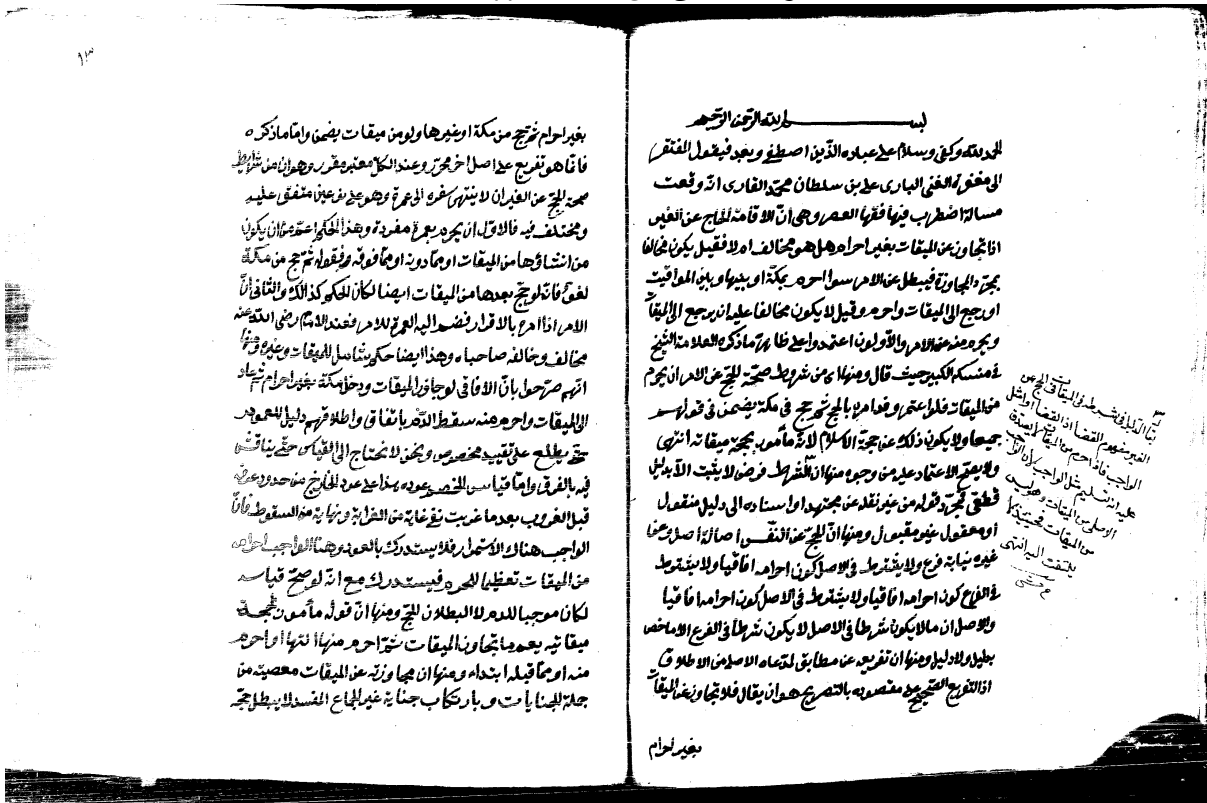 بسم الله الرحمن الرحيم
الحمد لله وكفى وسلام على عباده الذين اصطفى وبعد فيقول المفتقر
الى مغفرة الغنى البارى على بن سلطان محمد القارى انه وقعت
مسالة اضطرب فيها فقهاء العصر وهى ان الافاقى الحاج عن الغير
اذا تجاوز عن الميقات بغير احرام هل هو مخالف ام لا فقيل يكون مخالفا
بمجرد المجاوزة فيبطل عن الامر سوا احرم بمكة او بينها وبين المواقيت
او رجع الى الميقات واحرم وقيل لا يكون مخالفا عليه ان يرجع الى الميقات
ويحرم منه عن الامر والاولون اعتمدوا على ظاهر ما ذكره العلامة الشيخ
فى منسكه الكبير حيث قال ومنها اى من شروط صحة الحج عن الامر ان يحرم
من الميقات فلو اعتمر وقد امره بالحج ثم حج فى مكة يضمن فى قولهم
جميعا ولا يكون ذلك عن حجة الاسلام لانه مأمور بحجة ميقاتية انتهى
ولا يصح الاعتماد عليه من وجوه منها ان الشرط فرض لا يثبت الا بدليل
قطعى فمجرد قوله من غير نقله عن مجتهد او اسناده الى دليل منقول
او معقول غير مقبول ومنها ان الحج عن النفس اصالة اصل وعن
غيره نيابة فرع ولا يشترط فى الاصل كون احرامه افاقيا ولا يشترط
فى الفرع كون احرامه افاقيا ولا يشترط فى الاصل كون احرامه افاقيا
والاصل ان ما لا يكون شرطا فى الاصل لا يكون شرطا فى الفرع الا ما خص
بدليل ولا دليل ومنها ان تفريعه عن مطابق لمدعاه الاصل من الاطلاق
اذ التفريع الصحيح على مقصوده بالتصريح هو ان يقال فلا تجاوز عن الميقات
بغير احرام
الغير مفهوم القضا اذ القضا او امثل
الواجب فاذا احرم من الميقات
عليه انه تسليم مثل الواجب لان الواجب
من الميقات فحينئذ لا
يلتفت اليه انتهى
١٣
بغير احرام ثم حج من مكة او غيرها ولو من ميقات يضمن واما ما ذكره
فانما هو تفريع على اصل اخر محرر وعند الكل معتبر مقرر وهو ان من شرايط
صحة الحج عن الغير ان لا ينتهى سفره الى عمرة وهو على نوعين متفق عليه
ومختلف فيه فالاول ان يحرم بعمرة مفردة وهذا الحكم اعم من ان يكون
من انتشاؤها من الميقات او مما دونه او مما فوقه وفقوله ثم حج من مكة
لغو فانه لو حج بعدها من الميقات ايضا لكان الحكم كذالك والثانى ان
الامر اذا امره بالافراد فضم اليه العمرة للامر فعند الامام رضى الله عنه
مخالف وخالفه صاحباه وهذا ايضا حكم شامل للميقات وغيره ومنها
انهم صرحوا بان الافاقى لو جاوز الميقات ودخل مكة بغير احرام ثم عاد
الى الميقات واحرم منه سقط الدم باتفاق واطلاقهم دليل للعموم
حتى يطلع على تقييد مخصوص ونحن لا نحتاج الى القياس حتى يناقش
فيه بالفرق واما قياس الخصم عوده بهذا على عود الخارج من حدود عرفة
قبل الغروب بعد ما غربت فى غاية من الغرابة ونهاية من السقوط فان
الواجب هناك الاستمرار فلا يستدرك بالعود وهنا الواجب احرامه
من الميقات تعظيما للحرم فيستدرك مع انه لو صح قياسه
لكان موجبا للدم لا البطلان للحج ومنها ان قوله مأمور بحجة
ميقاتية يعم ما تجاوز الميقات ثم احرم منها انتهاء او احرم
منه او مما قبله ابتداء ومنها ان مجاوزته عن الميقات معصية من
جملة الجنايات وبارتكاب جناية غير الجماع المفسد لا يبطل حجه